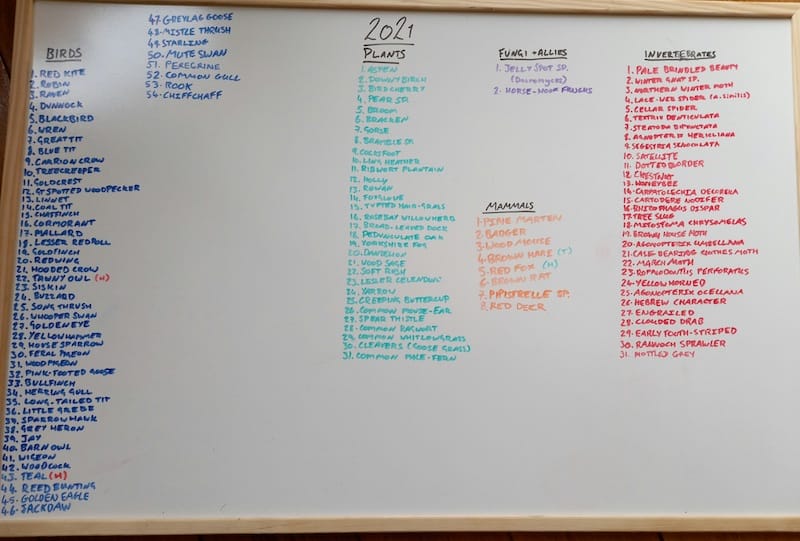 2021
BIRDS
1. RED KITE
2. ROBIN
3. RAVEN
4. DUNNOCK
5. BLACKBIRD
6. WREN
7. GREAT TIT
8. BLUE TIT
9. CARRION CROW
10. TREECREEPER
11. GOLDCREST
12. GT SPOTTED WOODPECKER
13. LINNET
14. COAL TIT
15. CHAFFINCH
16. CORMORANT
17. MALLARD
18. LESSER REDPOLL
19. GOLDFINCH
20. REDWING
21. HOODED CROW
22. TAWNY OWL (H)
23. SISKIN
24. BUZZARD
25. SONG THRUSH
26. WHOOPER SWAN
27. GOLDENEYE
28. YELLOWHAMMER
29. HOUSE SPARROW
30. FERAL PIGEON
31. WOODPIGEON
32. PINK-FOOTED GOOSE
33. BULLFINCH
34. HERRING GULL
35. LONG-TAILED TIT
36. LITTLE GREBE
37. SPARROWHAWK
38. GREY HERON
39. JAY
40. BARN OWL
41. WIGEON
42. WOODCOCK
43. TEAL (H)
44. REED BUNTING
45. GOLDEN EAGLE
46. JACKDAW
47. GREYLAG GOOSE
48. MISTLE THRUSH
49. STARLING
50. MUTE SWAN
51. PEREGRINE
52. COMMON GULL
53. ROOK
54. CHIFFCHAFF
PLANTS
1. ASPEN
2. DOWNY BIRCH
3. BIRD CHERRY
4. PEAR SP.
5. BROOM
6. BRACKEN
7. GORSE
8. BRAMBLE SP.
9. COCKSFOOT
10. LING HEATHER
11. RIBWORT PLANTAIN
12. HOLLY
13. ROWAN
14. FOXGLOVE
15. TUFTED HAIR-GRASS
16. ROSEBAY WILLOWHERB
17. BROAD-LEAVED DOCK
18. PEDUNCULATE OAK
19. YORKSHIRE FOG
20. DANDELION
21. WOOD SAGE
22. SOFT RUSH
23. LESSER CELENDINE
24. YARROW
25. CREEPING BUTTERCUP
26. COMMON MOUSE-EAR
27. SPEAR THISTLE
28. COMMON RAGWORT
29. COMMON WHITLOWGRASS
30. CLEAVERS (GOOSE GRASS)
31. COMMON MALE-FERN
FUNGI + ALLIES
1. JELLY SPOT SP.
(Dacromyces)
2. HORSE-HOOF FUNGUS
MAMMALS
1. PINE MARTEN
2. BADGER
3. WOOD MOUSE
4. BROWN HARE (T)
5. RED FOX (H)
6. BROWN RAT
7. PIPISTRELLE SP.
8. RED DEER
INVERTEBRATES
1. PALE BRINDLED BEAUTY
2. WINTER GNAT SP.
3. NORTHERN WINTER MOTH
4. LACE-WEB SPIDER (A. SIMILIS)
5. CELLAR SPIDER
6. TETRIX DENTICULATA
7. STEATODA BIPUNCTATA
8. AGNOPTERIX HERACLIANA
9. SEGESTRIA SENOCULATA
10. SATELLITE
11. DOTTED BORDER
12. CHESTNUT
13. HONEYBEE
14. CARPATOLECHIA DECORELLA
15. CARTODERE NODIFER
16. RHIZOPHAGUS DISPAR
17. TREE SLUG
18. MITOSTOMA CHRYSOMELAS
19. BROWN HOUSE MOTH
20. AGONOPTERIX UMBELLANA
21. CASE BEARING CLOTHES MOTH
22. MARCH MOTH
23. ROPALODONTUS PERFORATUS
24. YELLOW HORNED
25. AGONOPTERIX OCELLANA
26. HEBREW CHARACTER
27. ENGRAILED
28. CLOUDED DRAB
29. EARLY TOOTH-STRIPED
30. RANNOCH SPRAWLER
31. MOTTLED GREY